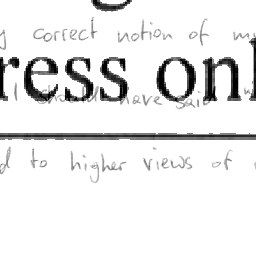 correct notion of
ress onl
I should have said
to higher views of